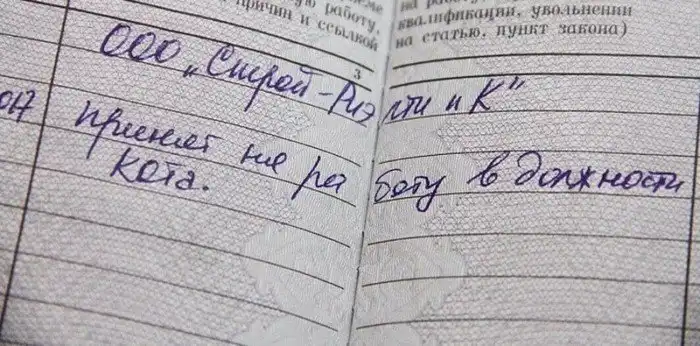 ую работу,
причин и ссылкой
на работу
квалификации, увольнении
на статью, пункт закона)
3
ООО „Строй-Риэлти и К"
017 принят на работу в должности
Кота.